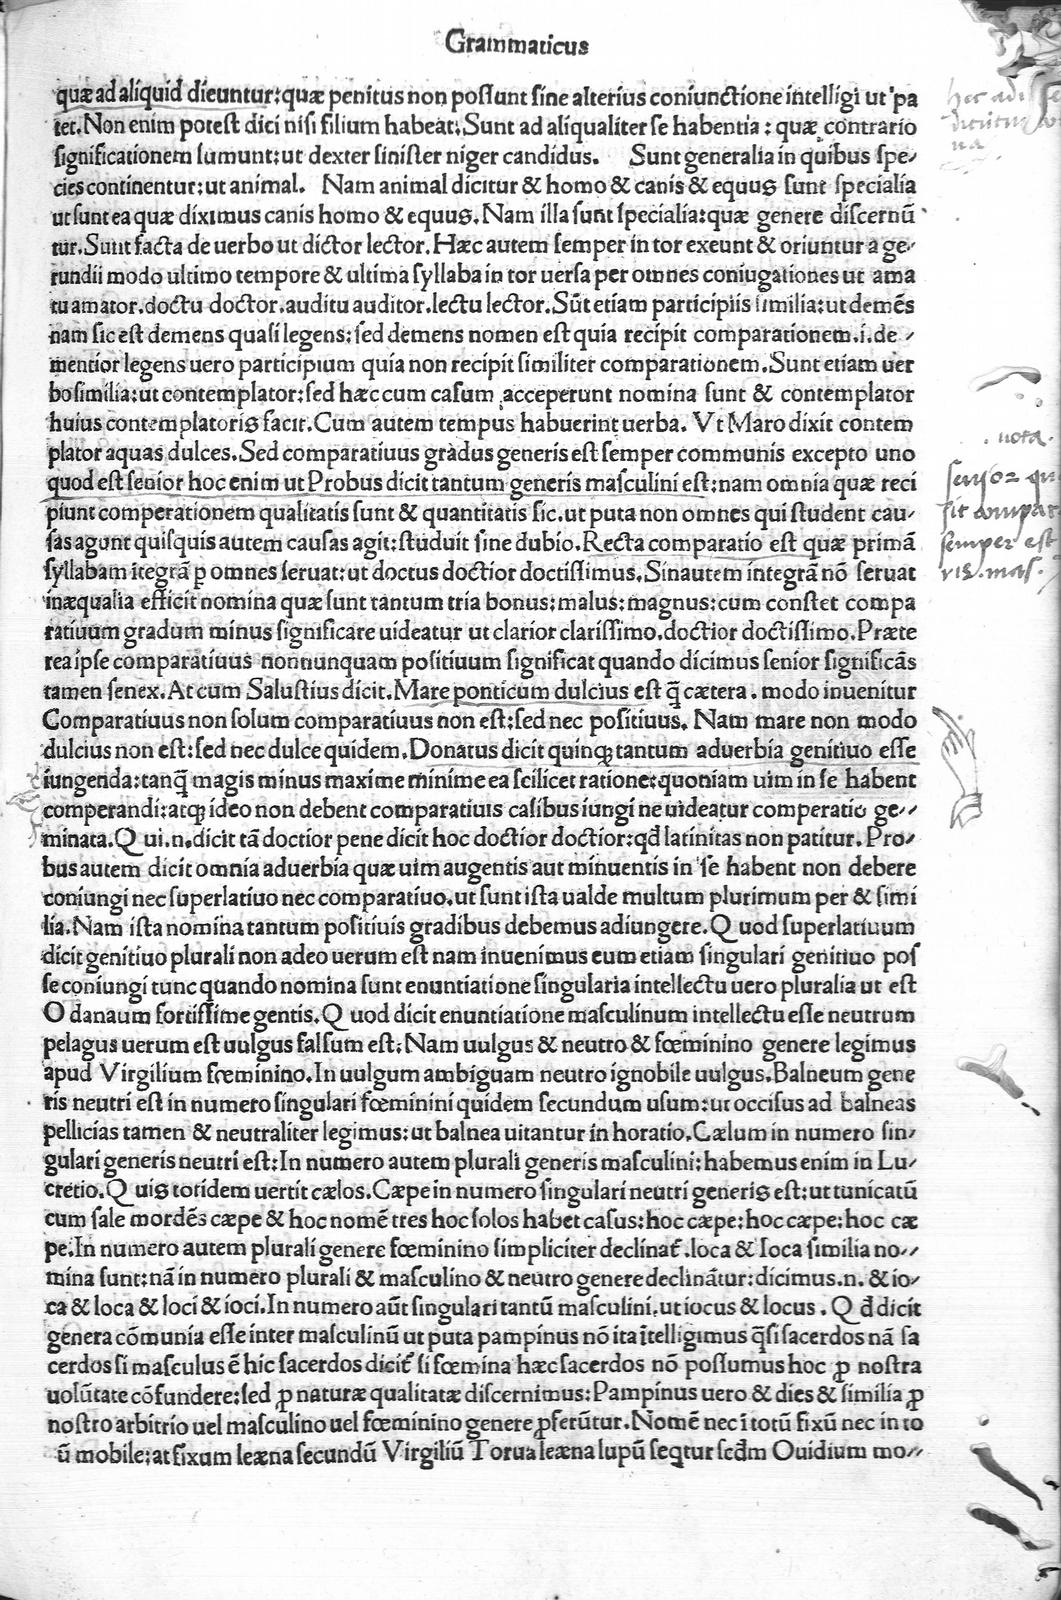 Grammaticus
quæ ad aliquid dicuntur: quæ penitus non possunt sine alterius coniunctione intelligi ut pa
ter. Non enim potest dici nisi filium habeat. Sunt ad aliqualiter se habentia: quæ contrario
significationem sumunt: ut dexter sinister niger candidus. Sunt generalia in quibus spe/
cies continentur: ut animal. Nam animal dicitur & homo & canis & equus sunt specialia
ut sunt ea quæ diximus canis homo & equus. Nam illa sunt specialia: quæ genere discernũ
tur. Sunt facta de uerbo ut dictor lector. Hæc autem semper in tor exeunt & oriuntur a ge/
rundii modo ultimo tempore & ultima syllaba in tor uersa per omnes coniugationes ut ama
tu amator. doctu doctor. auditu auditor. lectu lector. Sũt etiam participiis similia: ut demẽs
nam sic est demens quasi legens: sed demens nomen est quia recipit comparationem. i. de /
mentior legens uero participium quia non recipit similiter comparationem. Sunt etiam uer
bo similia: ut contemplator: sed hæc cum casum acceperunt nomina sunt & contemplator
huius contemplatoris facit. Cum autem tempus habuerint uerba. Vt Maro dixit contem
plator aquas dulces. Sed comparatiuus gradus generis est semper communis excepto uno
quod est senior hoc enim ut Probus dicit tantum generis masculini est: nam omnia quæ reci
piunt comperationem qualitatis sunt & quantitatis sic. ut puta non omnes qui student cau/
sas agunt quisquis autem causas agit: studuit sine dubio. Recta comparatio est quæ primã
syllabam itegrã ꝑ omnes seruat: ut doctus doctior doctissimus. Sinautem integrã nõ seruat
inæqualia efficit nomina quæ sunt tantum tria bonus: malus: magnus: cum constet compa
ratiuum gradum minus significare uideatur ut clarior clarissimo. doctior doctissimo. Præte
rea ipse comparatiuus nonnunquam positiuum significat quando dicimus senior significãs
tamen senex. At cum Salustius dicit. Mare ponticum dulcius est q̃ cætera. modo inuenitur
Comparatiuus non solum comparatiuus non est: sed nec positiuus. Nam mare non modo
dulcius non est: sed nec dulce quidem. Donatus dicit quinqꝫ tantum aduerbia genitiuo esse
iungenda: tanq̃ magis minus maxime minime ea scilicet ratione: quoniam uim in se habent
comperandi: atqꝫ ideo non debent comparatiuis casibus iungi ne uideatur comperatio ge//
minata. Qui. n. dicit tã doctior pene dicit hoc doctior doctior: qđ latinitas non patitur. Pro/
bus autem dicit omnia aduerbia quæ uim augentis aut minuentis in se habent non debere
coniungi nec superlatiuo nec comparatiuo. ut sunt ista ualde multum plurimum per & simi
lia. Nam ista nomina tantum positiuis gradibus debemus adiungere. Quod superlatiuum
dicit genitiuo plurali non adeo uerum est nam inuenimus eum etiam singulari genitiuo pos
se coniungi tunc quando nomina sunt enuntiatione singularia intellectu uero pluralia ut est
O danaum fortissime gentis. Quod dicit enuntiatione masculinum intellectu esse neutrum
pelagus uerum est uulgus falsum est: Nam uulgus & neutro & fœminino genere legimus
apud Virgilium fœminino. In uulgum ambiguam neutro ignobile uulgus. Balneum gene
ris neutri est in numero singulari fœminini quidem secundum usum: ut occisus ad balneas
pellicias tamen & neutraliter legimus: ut balnea uitantur in horatio. Cælum in numero sin/
gulari generis neutri est: In numero autem plurali generis masculini: habemus enim in Lu/
cretio. Quis totidem uertit cælos. Cæpe in numero singulari neutri generis est: ut tunicatũ
cum sale mordẽs cæpe & hoc nomẽ tres hoc solos habet casus: hoc cæpe: hoc cæpe: hoc cæ
pe. In numero autem plurali genere fœminino simpliciter declinat̃. loca & Ioca similia no//
mina sunt: nã in numero plurali & masculino & neutro genere declinãtur: dicimus. n. & io/
ca & loca & loci & ioci. In numero aũt singulari tantũ masculini. ut iocus & locus. Qđ dicit
genera cõmunia esse inter masculinũ ut puta pampinus nõ ita ĩtelligimus q̃si sacerdos nã sa
cerdos si masculus ẽ hic sacerdos dicit̃ si fœmina hæc sacerdos nõ possumus hoc ꝓ nostra
uolũtate cõfundere: sed ꝓ naturæ qualitatæ discernimus: Pampinus uero & dies & similia ꝓ
nostro arbitrio uel masculino uel fœminino genere ꝓferũtur. Nomẽ nec ĩ totũ fixũ nec in to
ũ mobile: at fixum leæna secundũ Virgiliũ Torua leæna lupũ seqtur scđm Ouidium mo//
nota.
semper est